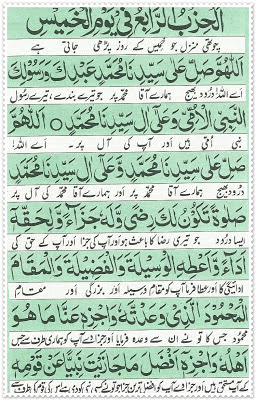 الحزب الرابع فی یوم الخمیس
چوتھی منزل جو خمیس کے روز پڑھی جاتی ہے
اَللّٰهُمَّ صَلِّ عَلٰى سَيِّدِنَا مُحَمَّدٍ عَبْدِكَ وَرَسُوْلِكَ
اے اللہ! درود بھیج ہمارے آقا محمد پر جو تیرے بندے، تیرے رسول
النَّبِيِّ الْاُمِّيِّ وَعَلٰى اٰلِ سَيِّدِنَا مُحَمَّدٍ ○ اَللّٰهُمَّ
نبی اُمّی ہیں اور آپ کی آل پر۔ اے اللہ!
صَلِّ عَلٰى سَيِّدِنَا مُحَمَّدٍ وَّعَلٰى اٰلِ سَيِّدِنَا مُحَمَّدٍ
درود بھیج ہمارے آقا محمد پر اور ہمارے آقا محمد کی آل پر
صَلٰوةً تَكُوْنُ لَكَ رِضًى وَّلَهٗ جَزَآءً وَّلِحَقِّهٖ
ایسا درود جو تیری رضا کا باعث ہو اور آپ کی جزا اور آپ کے حق کی
اَدَآءً وَّاَعْطِهِ الْوَسِيْلَةَ وَالْفَضِيْلَةَ وَالْمَقَامَ
ادائیگی کا اور عطا فرما آپ کو مقام وسیلہ اور بزرگی اور مقام
الْمَحْمُوْدَ الَّذِيْ وَعَدْتَّهٗ وَاجْزِهٖ عَنَّا مَا هُوَ
محمود جس کا تو نے ان سے وعدہ فرمایا اور جزا دے آپ کو ہماری طرف سے جس
اَهْلُهٗ وَاجْزِهٖ اَفْضَلَ مَا جَازَيْتَ نَبِيًّا عَنْ قَوْمِهٖ
کے آپ مستحق ہیں اور جزا دے آپ کو افضل ترین جزا جو تو نے کسی نبی کو